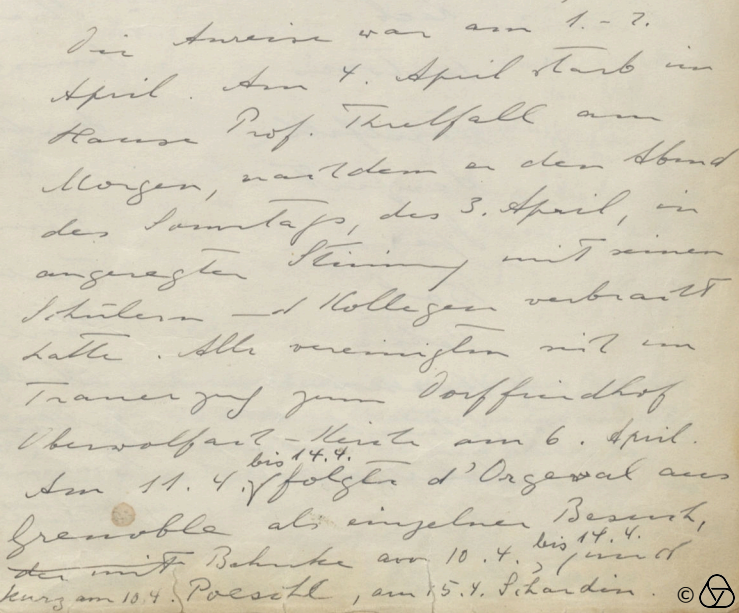 Die Anreise war am 1.-2.
April. Am 4. April starb im
Hause Prof. Threlfall am
Morgen, nachdem er den Abend
des Sonntags, des 3. April, in
angeregter Stimmung mit seinen
Schülern und Kollegen verbracht
hatte. Alle vereinigten sich im
Trauerzug zum Dorffriedhof
Oberwolfach-Kirche am 6. April.
Am 11.4. bis 14.4. folgte d'Orgeval aus
Grenoble als einzelner Besuch,
der mit Behnke am 10.4. bis 14.4. und
kurz am 10.4. Poeschl, am 15.4. Schardin.
©